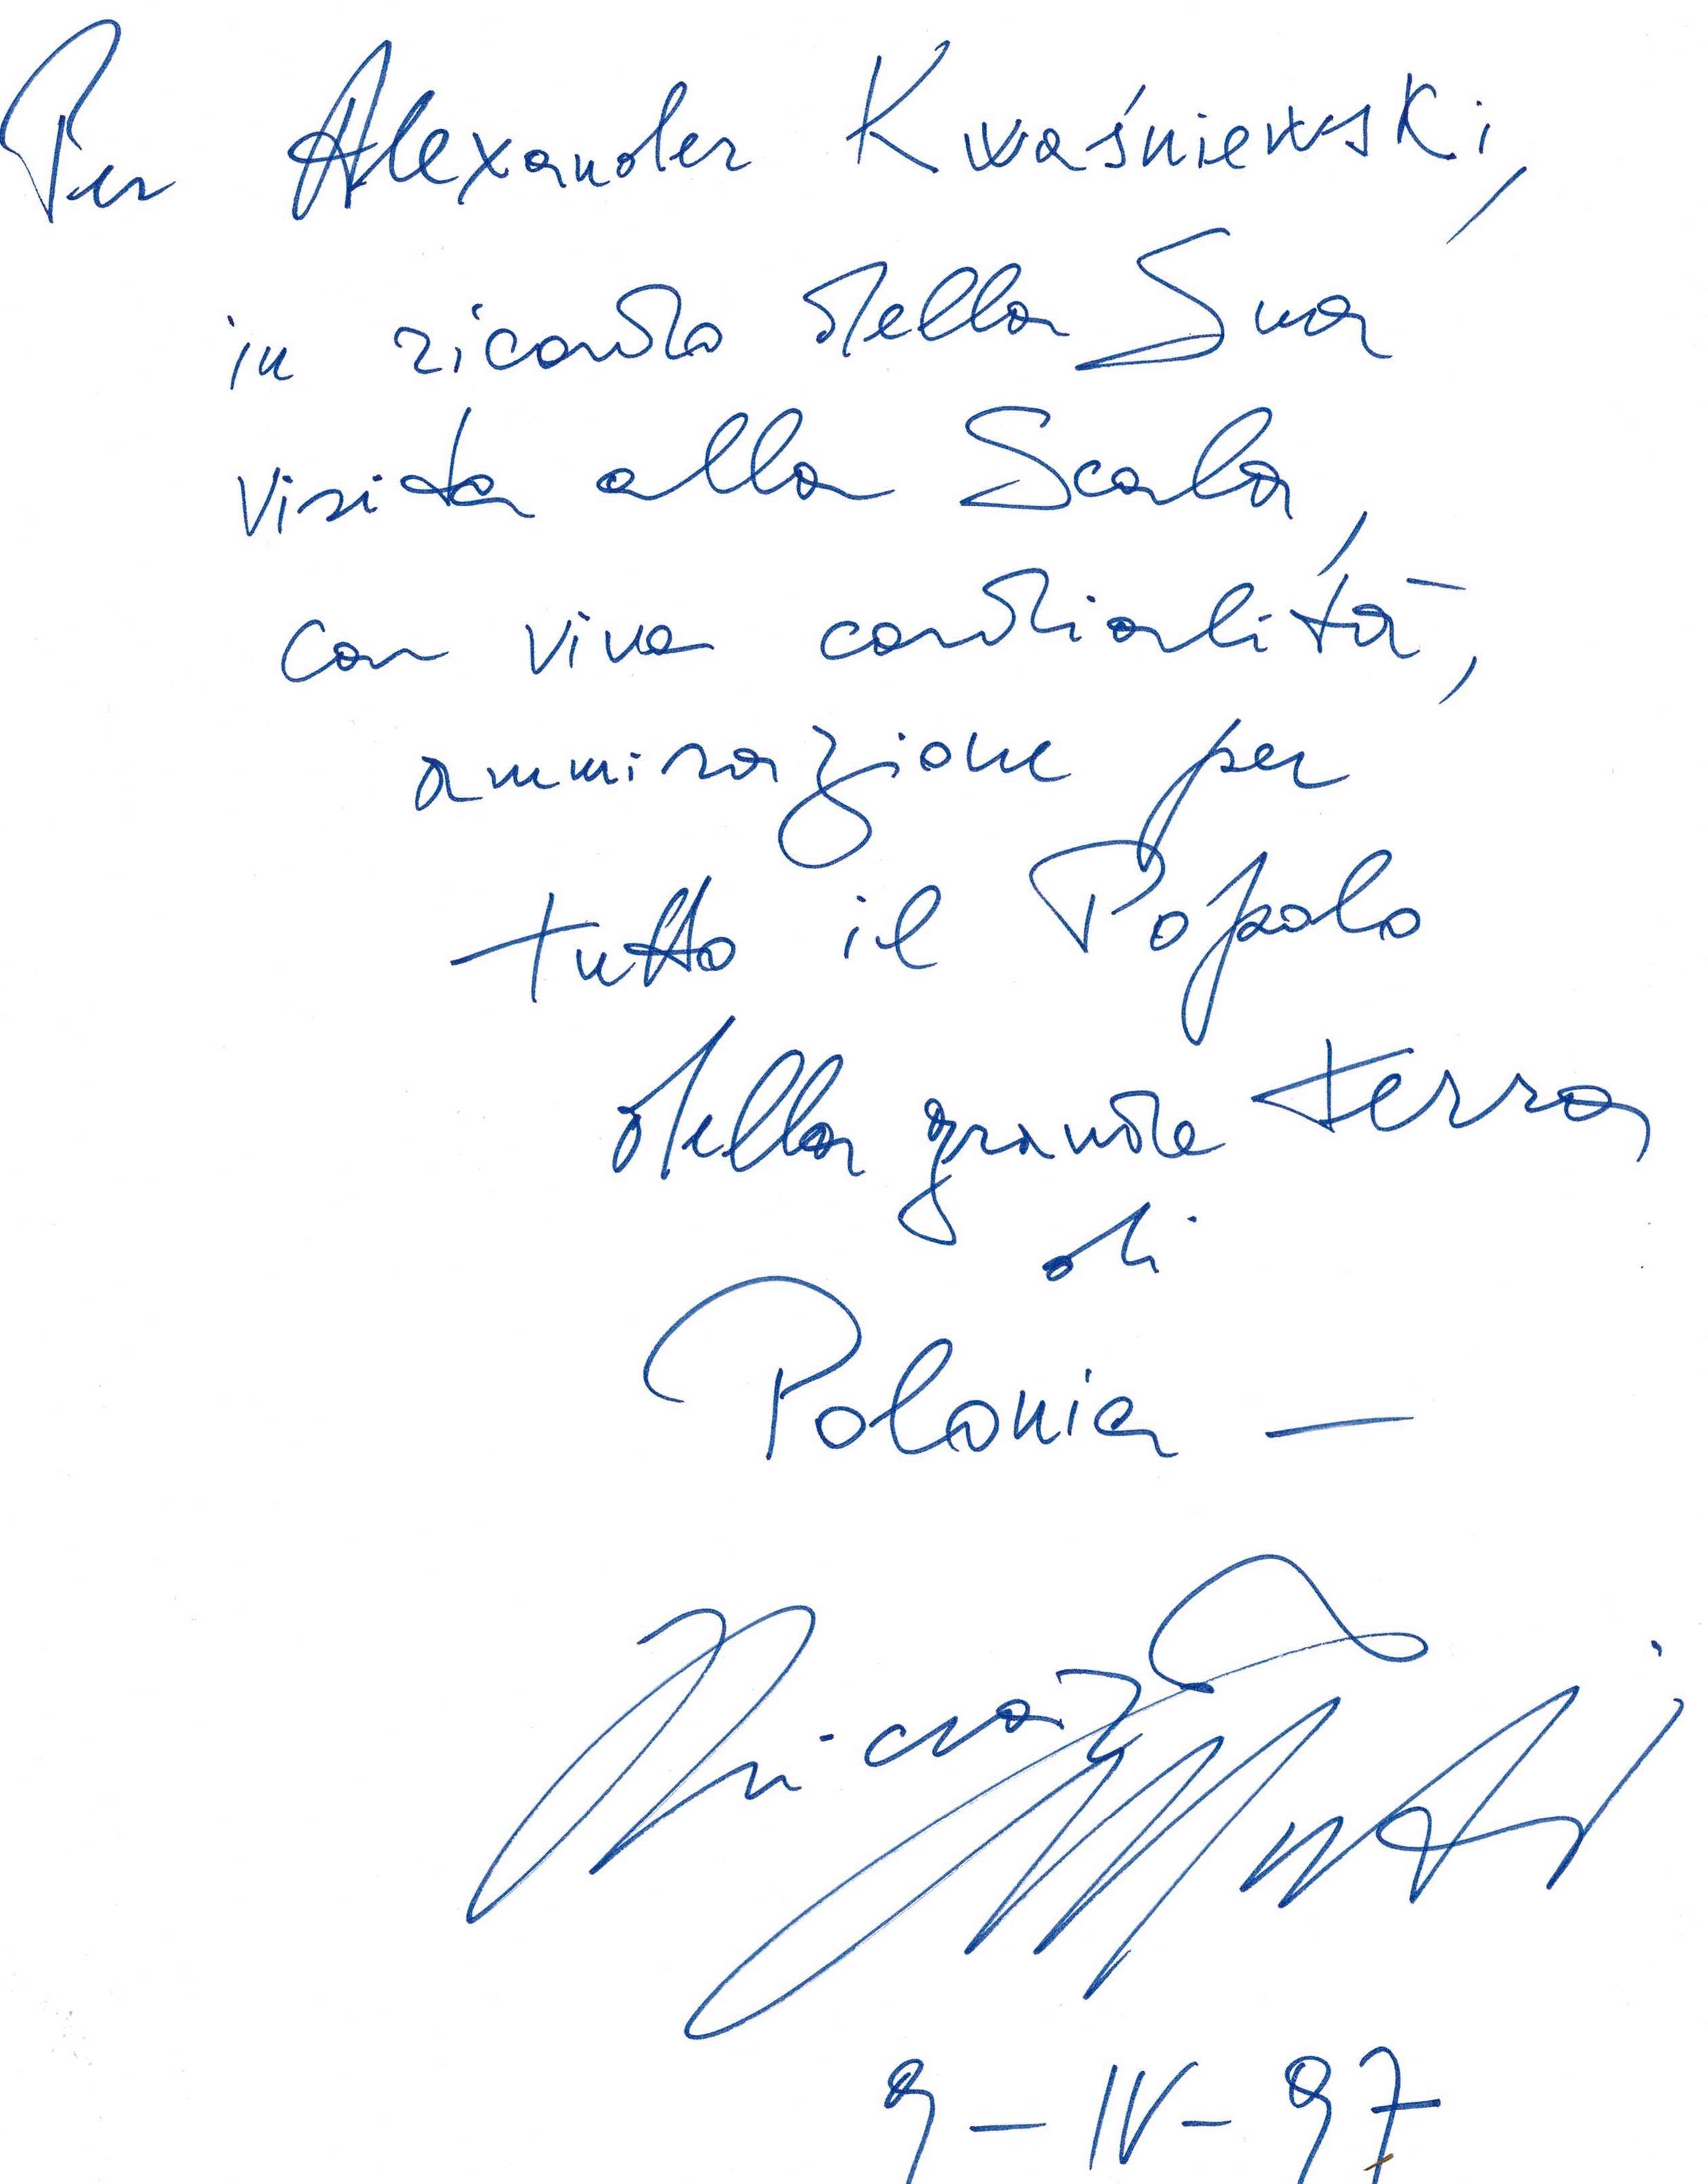 Per Alexander Kwaśniewski,
in ricordo della Sua
visita alla Scala,
con viva cordialità,
ammirazione per
tutto il Popolo
della grande terra
di
Polonia —
Riccardo Muti
9-IV-97